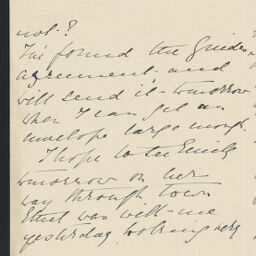 not?
I've found the Guides
agreement and
will send it tomorrow
when I can get an
envelope large enough.
I hope to see Emily
tomorrow on her
way through town
Ethel was with me
yesterday, looking very